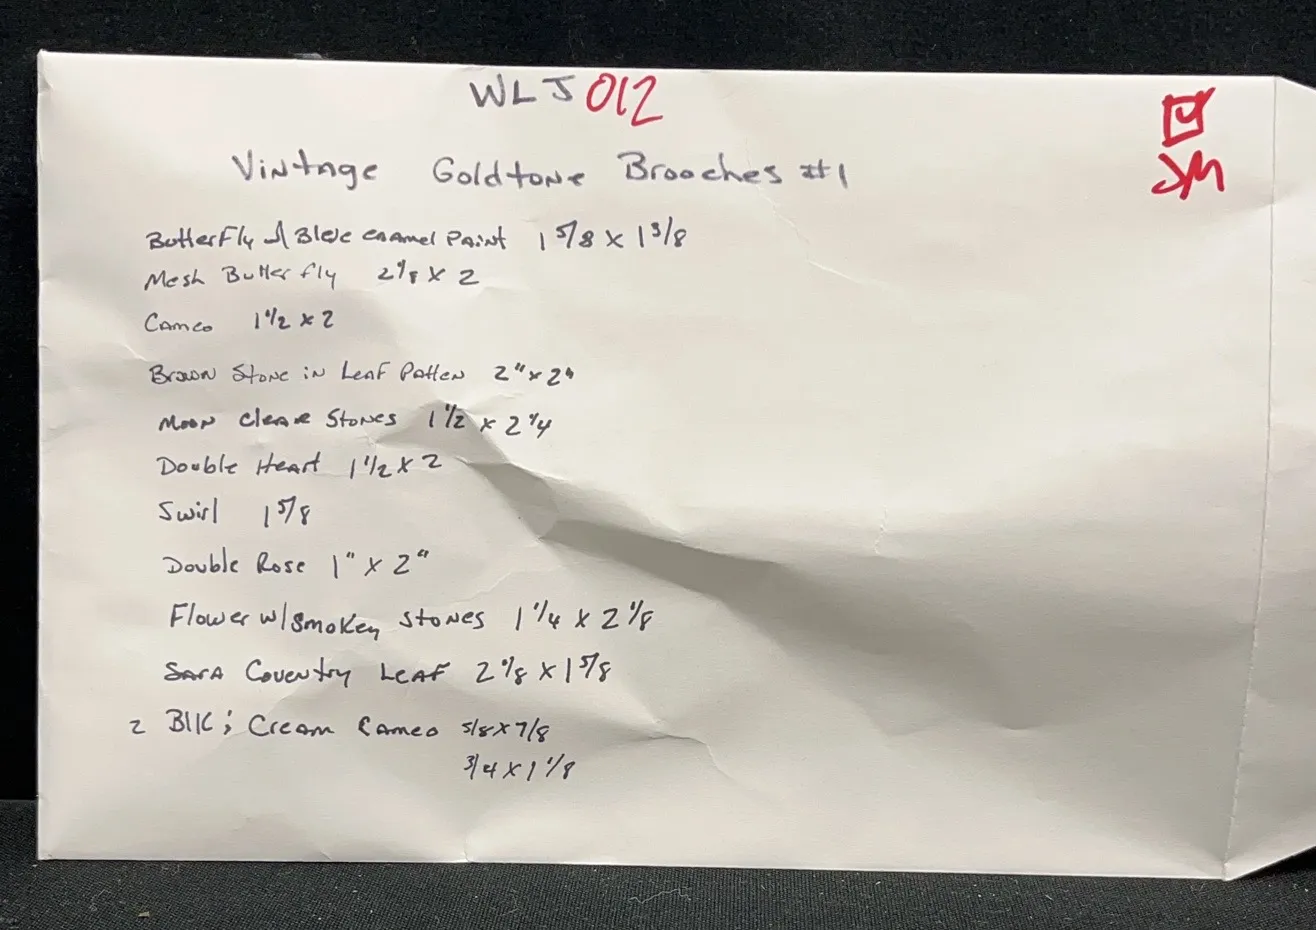 WLJ 012
JM
Vintage Goldtone Brooches #1
Butterfly w/ Blue enamel Paint 1 5/8 x 1 3/8
Mesh Butterfly 2 1/8 x 2
Cameo 1 1/2 x 2
Brown Stone in Leaf Patten 2" x 2"
Moon Clear Stones 1 1/2 x 2 1/4
Double Heart 1 1/2 x 2
Swirl 1 5/8
Double Rose 1" x 2"
Flower w/ Smokey Stones 1 1/4 x 2 1/8
Sara Coventry Leaf 2 1/8 x 1 5/8
2 Blk ; Cream Cameo 5/8 x 7/8
3/4 x 1 1/8